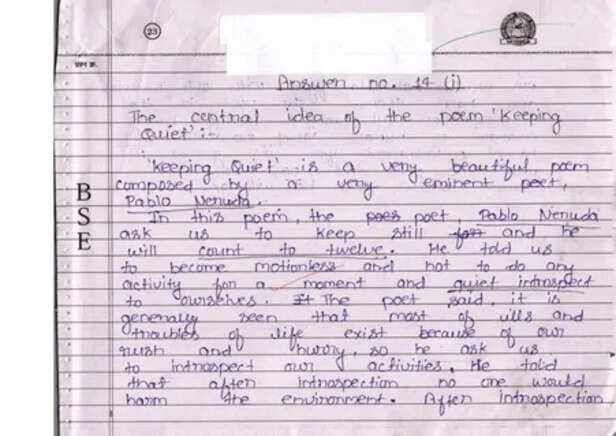 23
प्रश्न क्र.
Answer no. 14 (i)
The central idea of the poem 'Keeping
Quiet' :-
'Keeping Quiet' is a very beautiful poem
composed by a very eminent poet,
Pablo Neruda.
In this poem, the poes poet, Pablo Neruda
ask us to keep still and he
will count to twelve. He told us
to become motionless and not to do any
activity for a moment and quiet introspect
to ourselves. It The poet said, it is
generally seen that most of ills and
troubles of life exist because of our
rush and hurry, so he ask us
to introspect our activities. He told
that after introspection no one would
harm the environment. After introspection
B
S
E